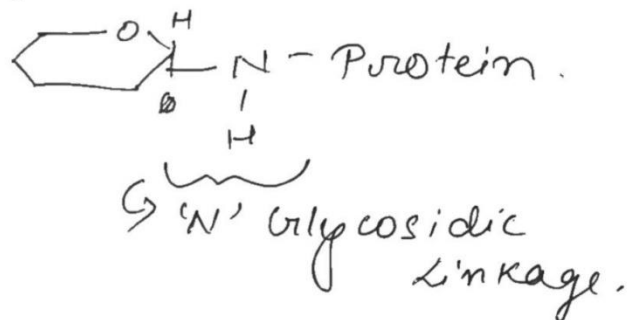 H
O
N - Protein.
H
'N' Glycosidic
Linkage.